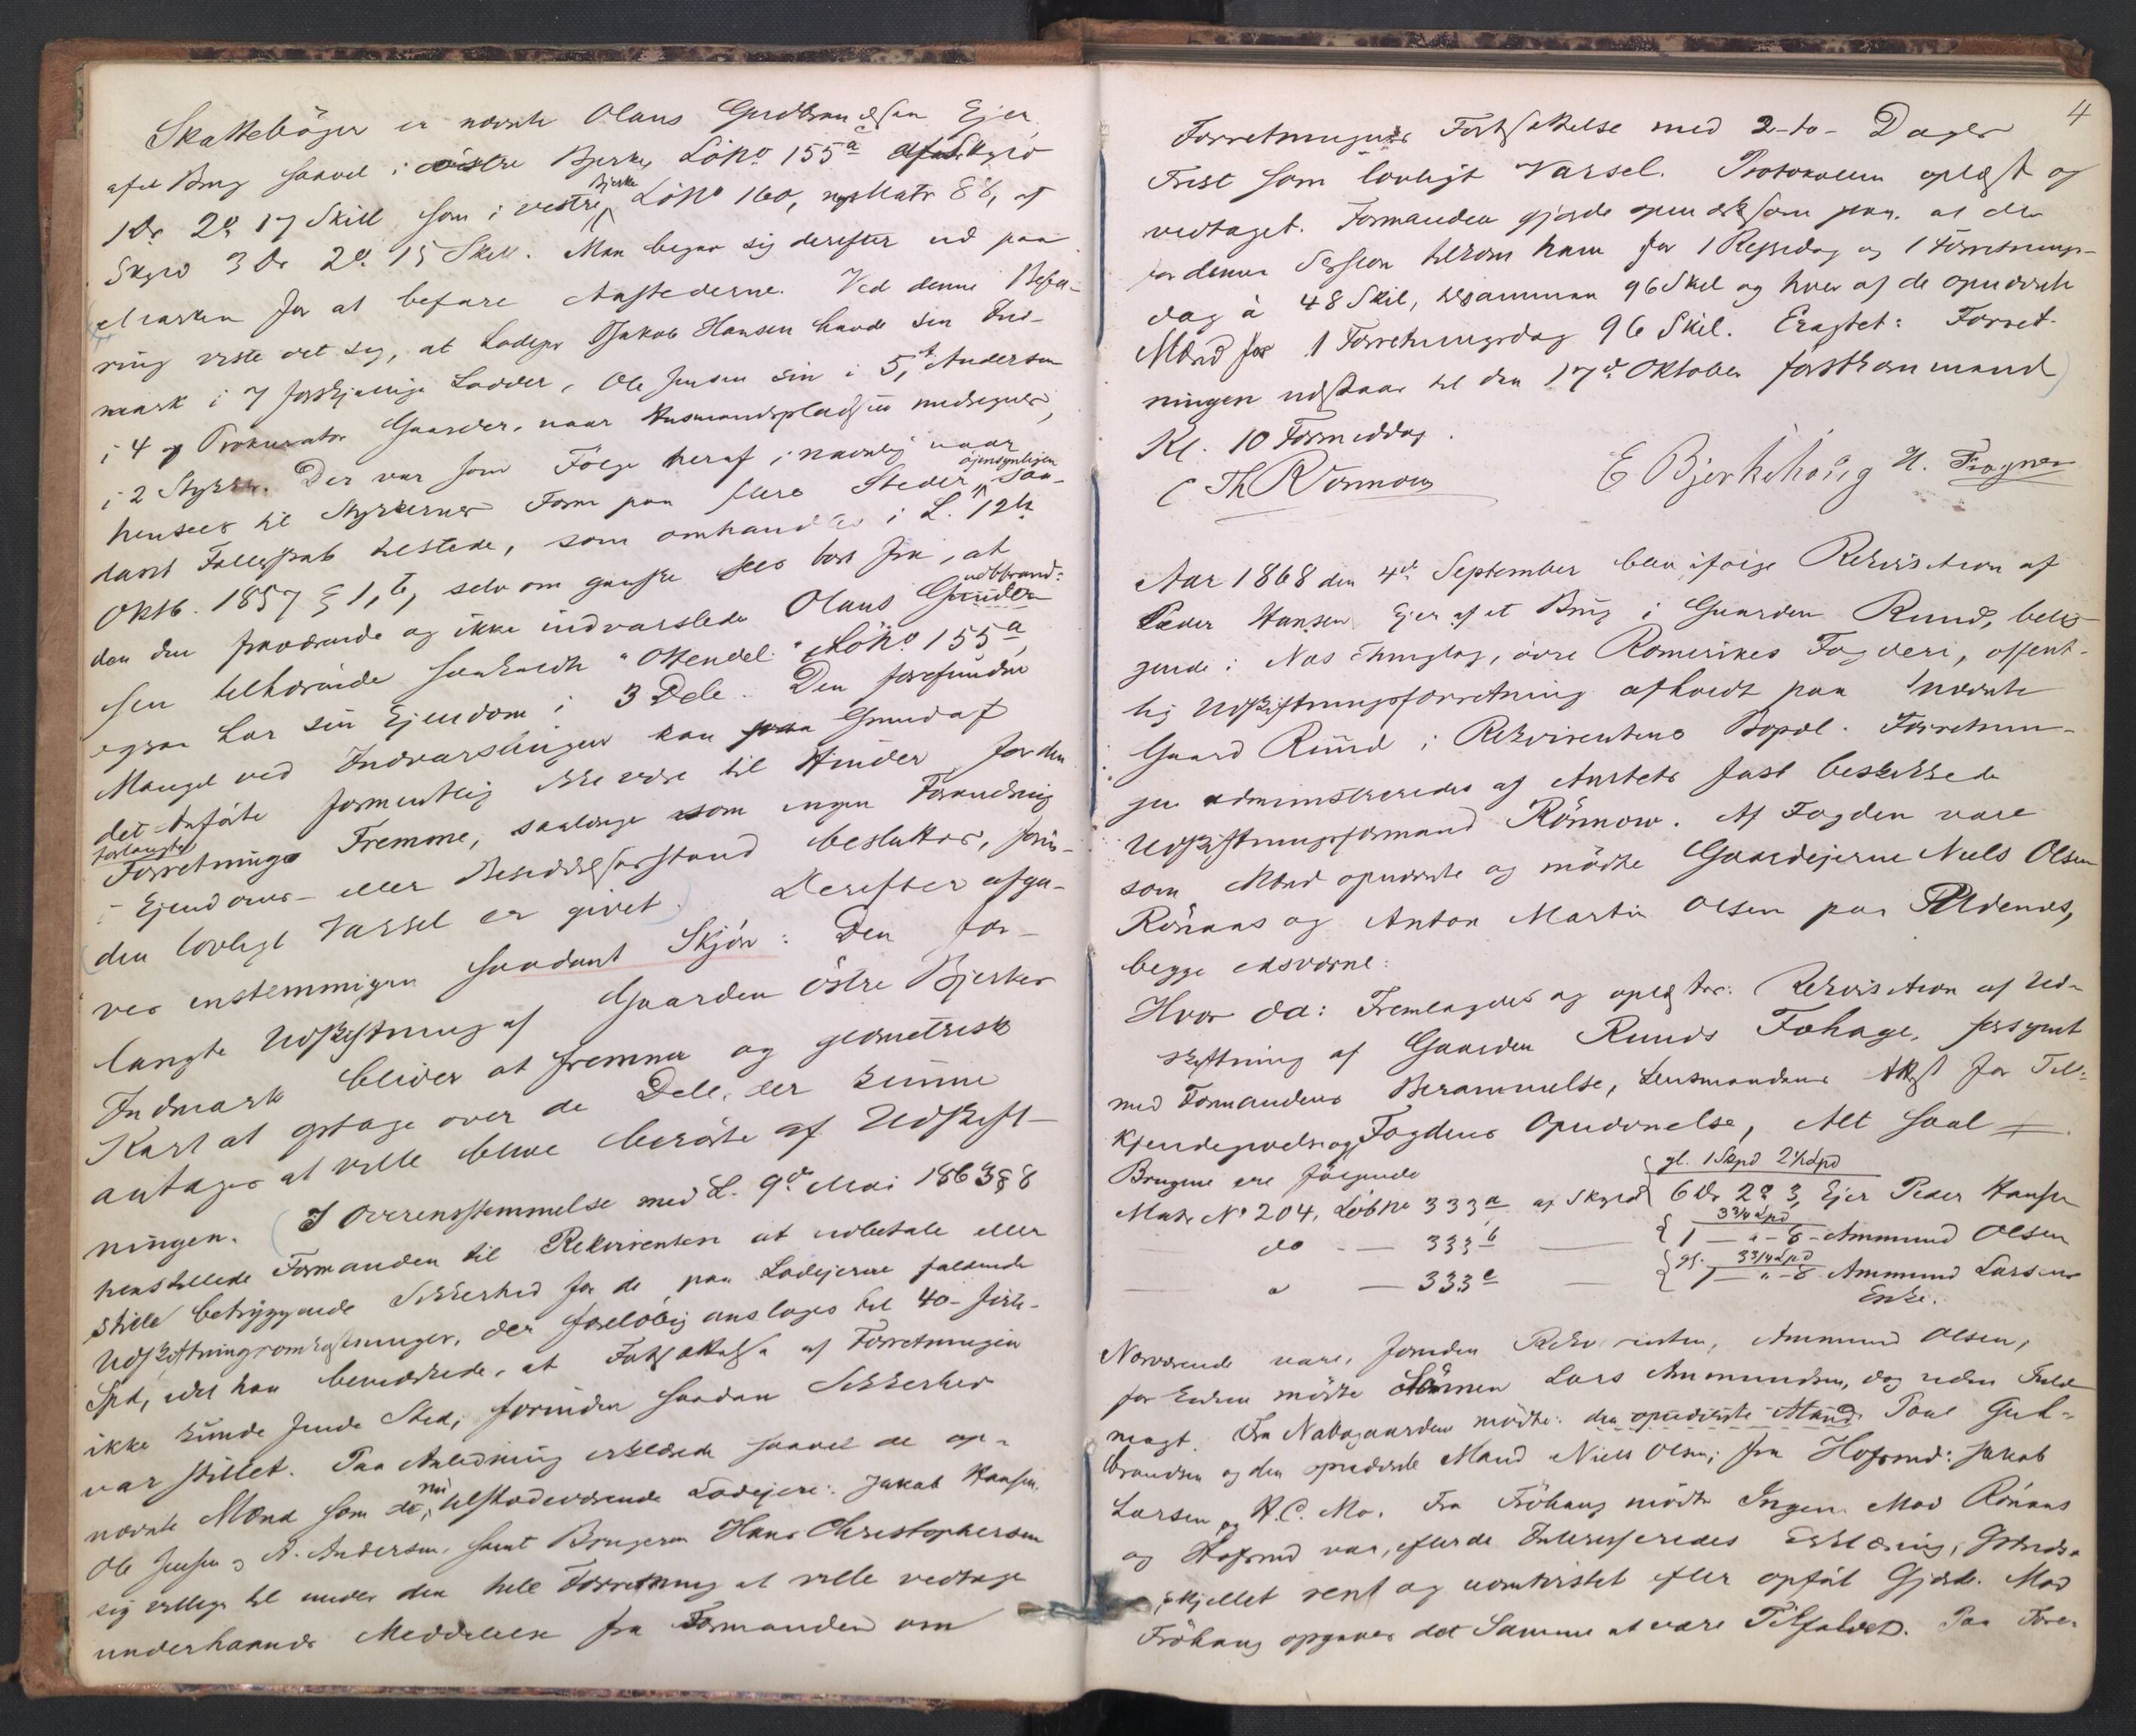 Skattebøger er nævnte Olaus Gudbrandsen Ejer
af et Brug saavel i østre Bjerke, Löpno 155a af Skyld
1 Dr 2 O 17 Skill som i vestre Bjerke Löpno 160, Matr 86, af
Skyld 3 Dr 2 O 15 Skill. Man begav sig derefter ud paa
Marken for at befare Aastederne. Ved denne Befa-
ring viste det sig, at Lodejer Jakob Hansen havde sin Ind-
mark i 7 forskjellige Lodder, Ole Jensen sin i 5, A. Andersen
i 4 og Prokurator Gaarder, naar Husmandspladsen medregnes,
i 2 Stykker. Der var som Følge heraf, navnlig naar
hensees til Stykkernes Form paa flere Steder øiensynligen saa-
dant Fællesskab tilstede, som omhandles i L. 12te
Oktb. 1857 § 1, b, selv om ganske sees bort fra, at
den den fraværende og ikke indvarslede Olaus Gudbrand-
sen tilhørende saakaldte "Ottendel" Löpno 155a,
ogsaa har sin Ejendom i 3 Dele. Den forefundne
Mangel ved Indvarslingen kan paa Grund af
det Anførte formentlig ikke være til Hinder for den
forlangte Forretnings Fremme, saalænge som ingen Forandring
i Ejendoms- eller Besiddelsesstand besluttes, førin-
den lovligt Varsel er givet. Derefter afga-
ves enstemmigen saadant Skjøn: Den for-
langte Udskiftning af Gaarden østre Bjerkes
Indmark bliver at fremme og geometrisk
Kart at optage over de Dele, der kunne
antages at ville blive berørte af Udskift-
ningen. I Overensstemmelse med L. 9de Mai 1863 § 8
henstillede Formanden til Rekvirenten at udbetale eller
stille betryggende Sikkerhed for de paa Lodejerne faldende
Udskiftningsomkostninger, der foreløbig ansloges til 40 - firti-
Spd, idet han bemærkede, at Fortsættelse af Forretningen
ikke kunde finde Sted, forinden saadan Sikkerhed
var stillet. Paa Anledning erklærede saavel de op-
nævnte Mænd som de nu tilstedeværende Lodejere: Jakob Hansen,
Ole Jensen og A. Andersen, samt Brugeren Hans Christophersen
sig villige til under den hele Forretning at ville vedtage
underhaands Meddelelse fra Formanden om
4
Forretningens Fortsættelse med 2 - to - Dages
Frist som lovligt Varsel. Protokollen oplæst og
vedtaget. Formanden gjorde opmærksom paa, at der
for denne Session tilkom ham for 1 Rejsedag og 1 Forretnings-
dag à 48 Skil, tilsammen 96 Skil og hver af de opnævnte
Mænd for 1 Forretningsdag 96 Skil. Eragtet: Forret-
ningen udstaar til den 17de Oktober førstkommende
Kl. 10 Formiddag.
C Th Rönnow E Bjerkehoug H. Frogner
Aar 1868 den 4de September blev ifølge Rekvisition af
Peder Hansen Ejer af et Brug i Gaarden Rund, belig-
gende i Næs Thinglag, øvre Romerikes Fogderi, offent-
lig Udskiftningsforretning afholdt paa nævnte
Gaard Rund i Rekvirentens Bopæl. Forretnin-
gen administreredes af Amtets fast beskikkede
Udskiftningsformand Rönnow. Af Fogden vare
som Mænd opnævnte og mødte Gaardejerne Niels Olsen
Rönaas og Anton Martin Olsen paa Uldenæs,
begge edsvorne:
Hvor da: Fremlagdes og oplæstes: Rekvisition af Ud-
skiftning af Gaarden Runds Fæhage, forsynt
med Formandens Berammelse, Lensmandens Attest for Til-
kjendegivelse og Fogdens Opnævnelse, Alt saal
Brugene ere følgende gl. 1 Skpd 2½ Lpd
Matr No 204, Löbno 333a, af Skyld 6 Dr 2 O 3, Ejer Peder Hansen
3¾ Lpd
do - — 333b — 1 — " - 8 - Ammund Olsen
gl. 3¾ Lpd
— " — 333c — 1 — " - 8 Ammund Larsens
Enke.
Nærværende vare, foruden Rekvirenten, Ammund Olsen,
for Enken mødte Sönnen Lars Ammundsen, dog uden Fuld-
magt. Fra Nabogaarden mødte: den opnævnte Mand Poul Gul-
brandsen og den opnævnte Mand Niels Olsen; fra Hofsrud: Jakob
Larsen og H. C. Mo. Fra Fröhaug mødte Ingen. Mod Rönaas
og Hofsrud var, efter de Interesseredes Erklæring, Grændse-
skjellet rent og uomtvistet efter opført Gjærde. Mod
Fröhaug opgaves det Samme at være Tilfældet. Paa Fore-